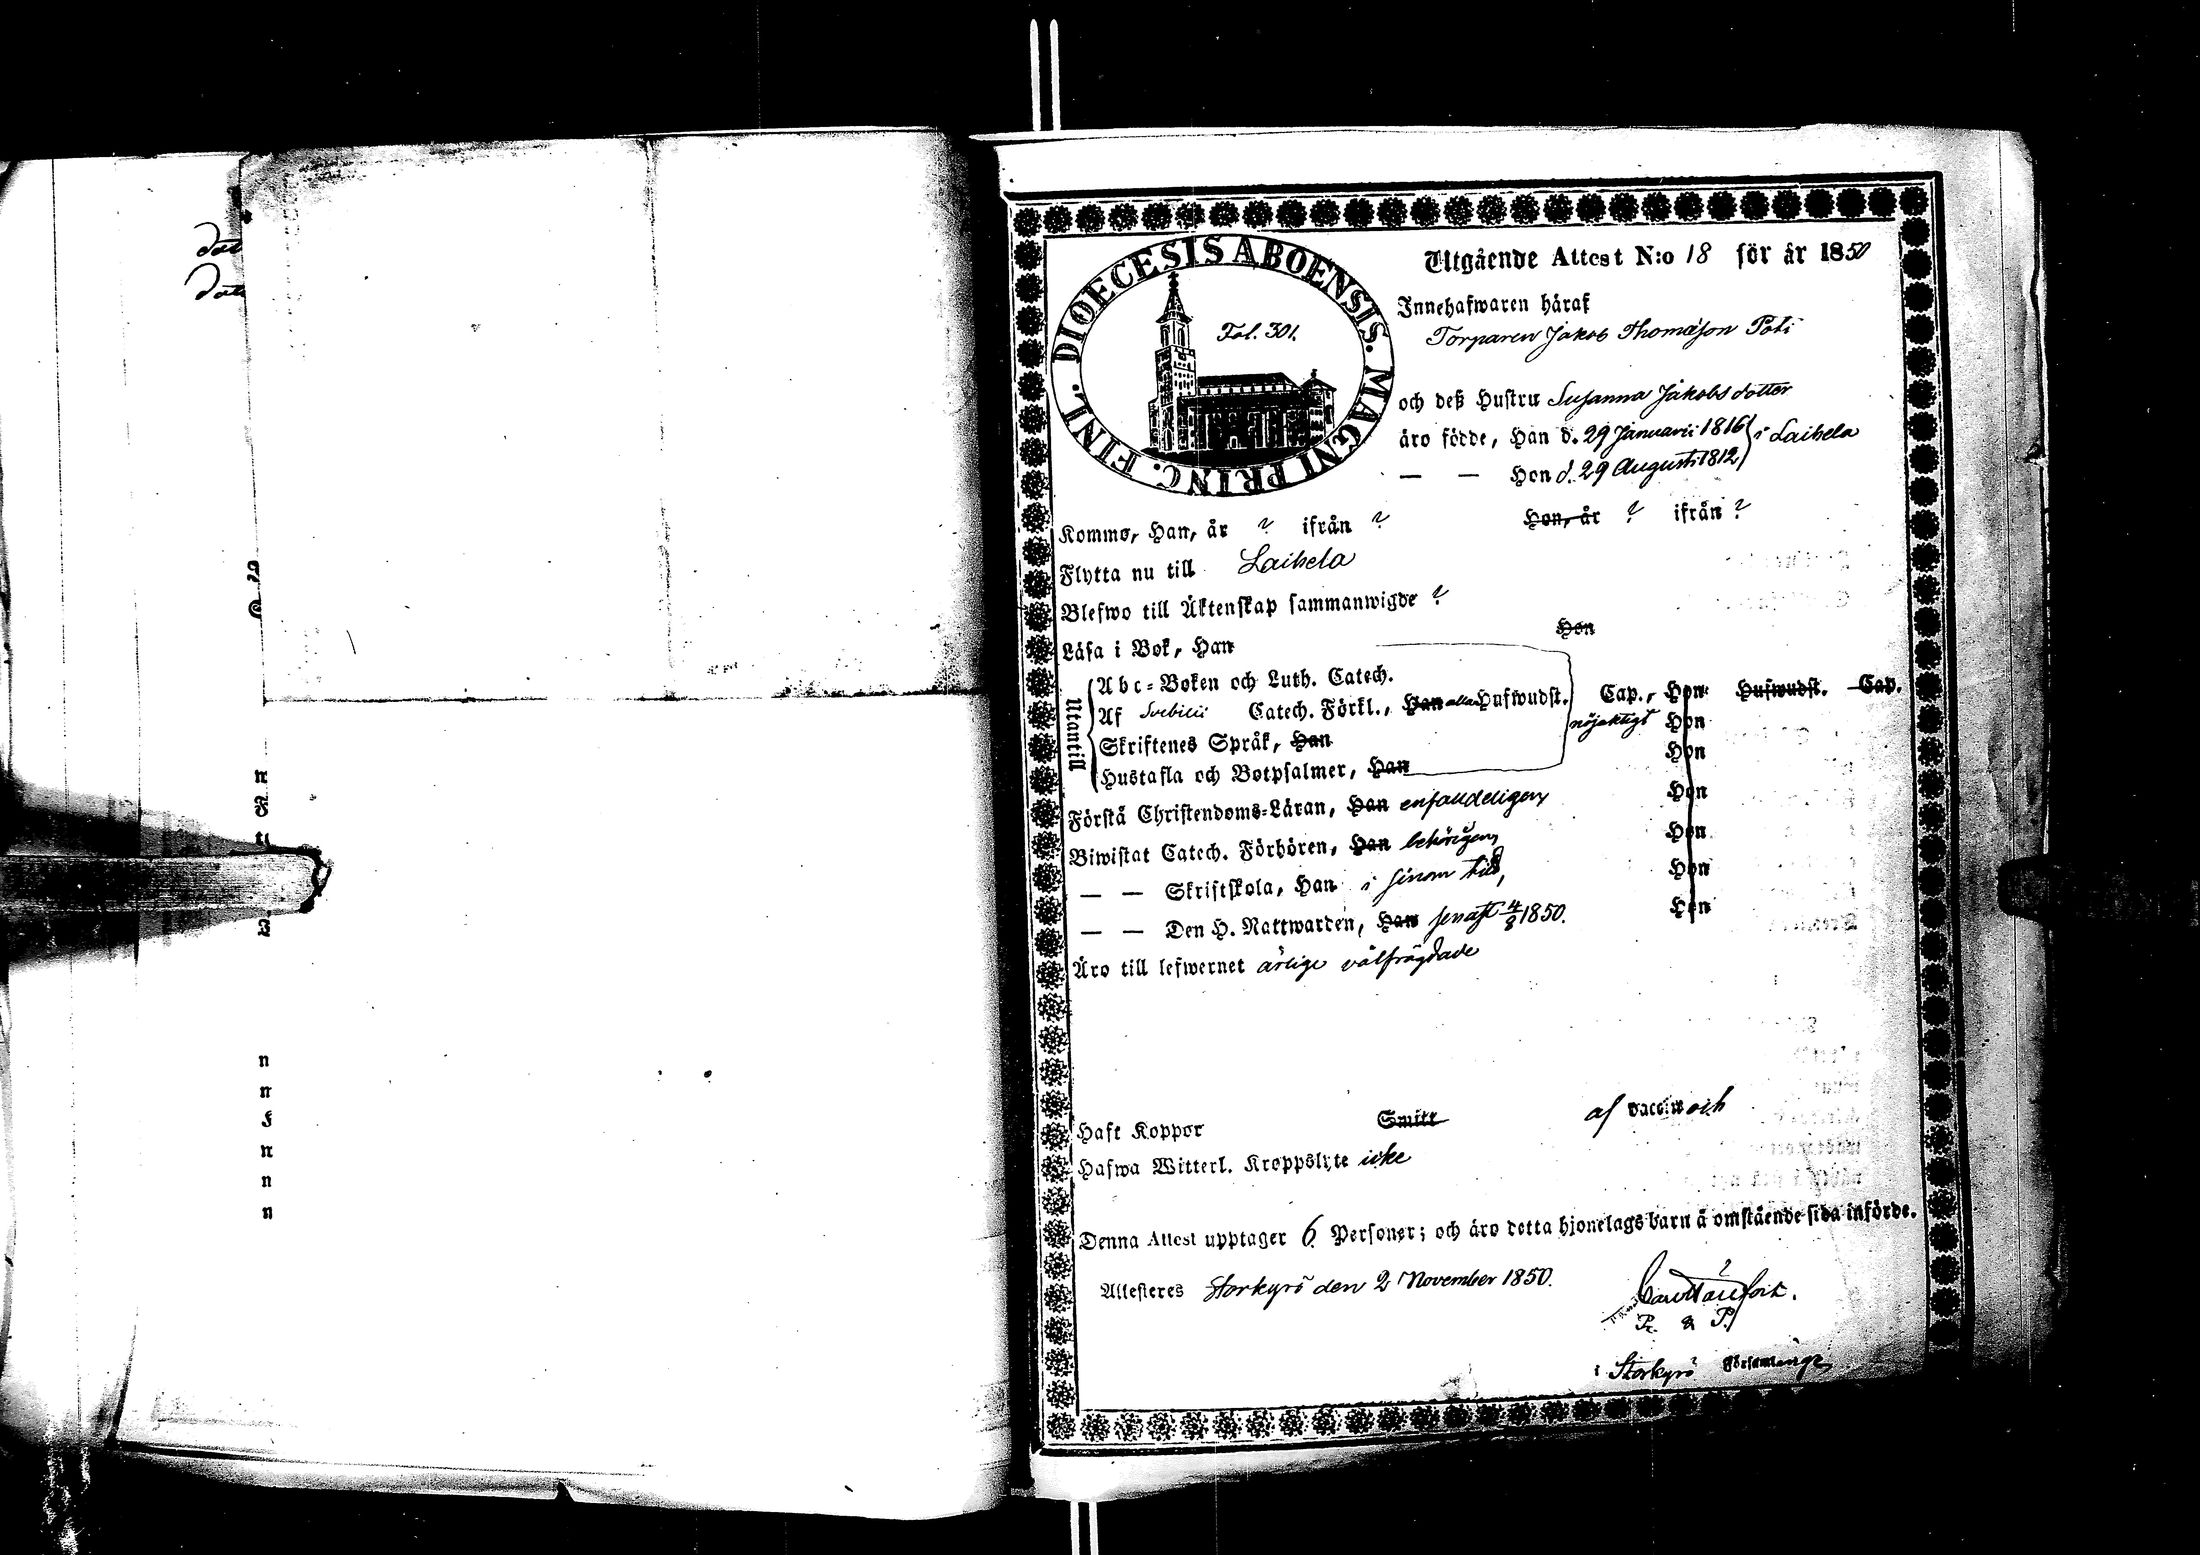 dat
DIOECESIS ABOENSIS. MAGNI PRINC. FINL.
Fol. 301.
Utgående Attest N:o 18 för år 1850
Innehafwaren häraf
Torparen Jakob Thomasson Poti
och deß Hustru Susanna Jakobsdotter
äro födde, Han d. 29 Januarii 1816 i Laihela
— — Hon d. 29 Augusti 1812
Kommo, Han, år ? ifrån ? Hon, år ? ifrån ?
Flytta nu till Laihela
Blefwo till Äktenskap sammanwigde ?
Läsa i Bok, Han Hon
Utantill
Abc-Boken och Luth. Catech.
Af Svebilii Catech. Förkl., Han alla Hufwudst. Cap., Hon Hufwudst. Cap.
nöjaktigt Hon
Skriftenes Språk, Han Hon
Hustafla och Botpsalmer, Han Hon
Förstå Christendoms-Läran, Han enfaldeligen Hon
Biwistat Catech. Förhören, Han behörigen Hon
— — Skriftskola, Han i sinom tid, Hon
— — Den H. Nattwarden, Han senast 4/8 1850.
Äro till lefwernet ärlige välfrägdade
Haft Koppor Smitt af vaccin och
Hafwa Witterl. Kroppslyte icke
Denna Attest upptager 6 Personer; och äro detta hjonelags barn å omstående sida införde.
Attesteres Storkyro den 2 November 1850.
P. & P.
i Storkyro Församlinga